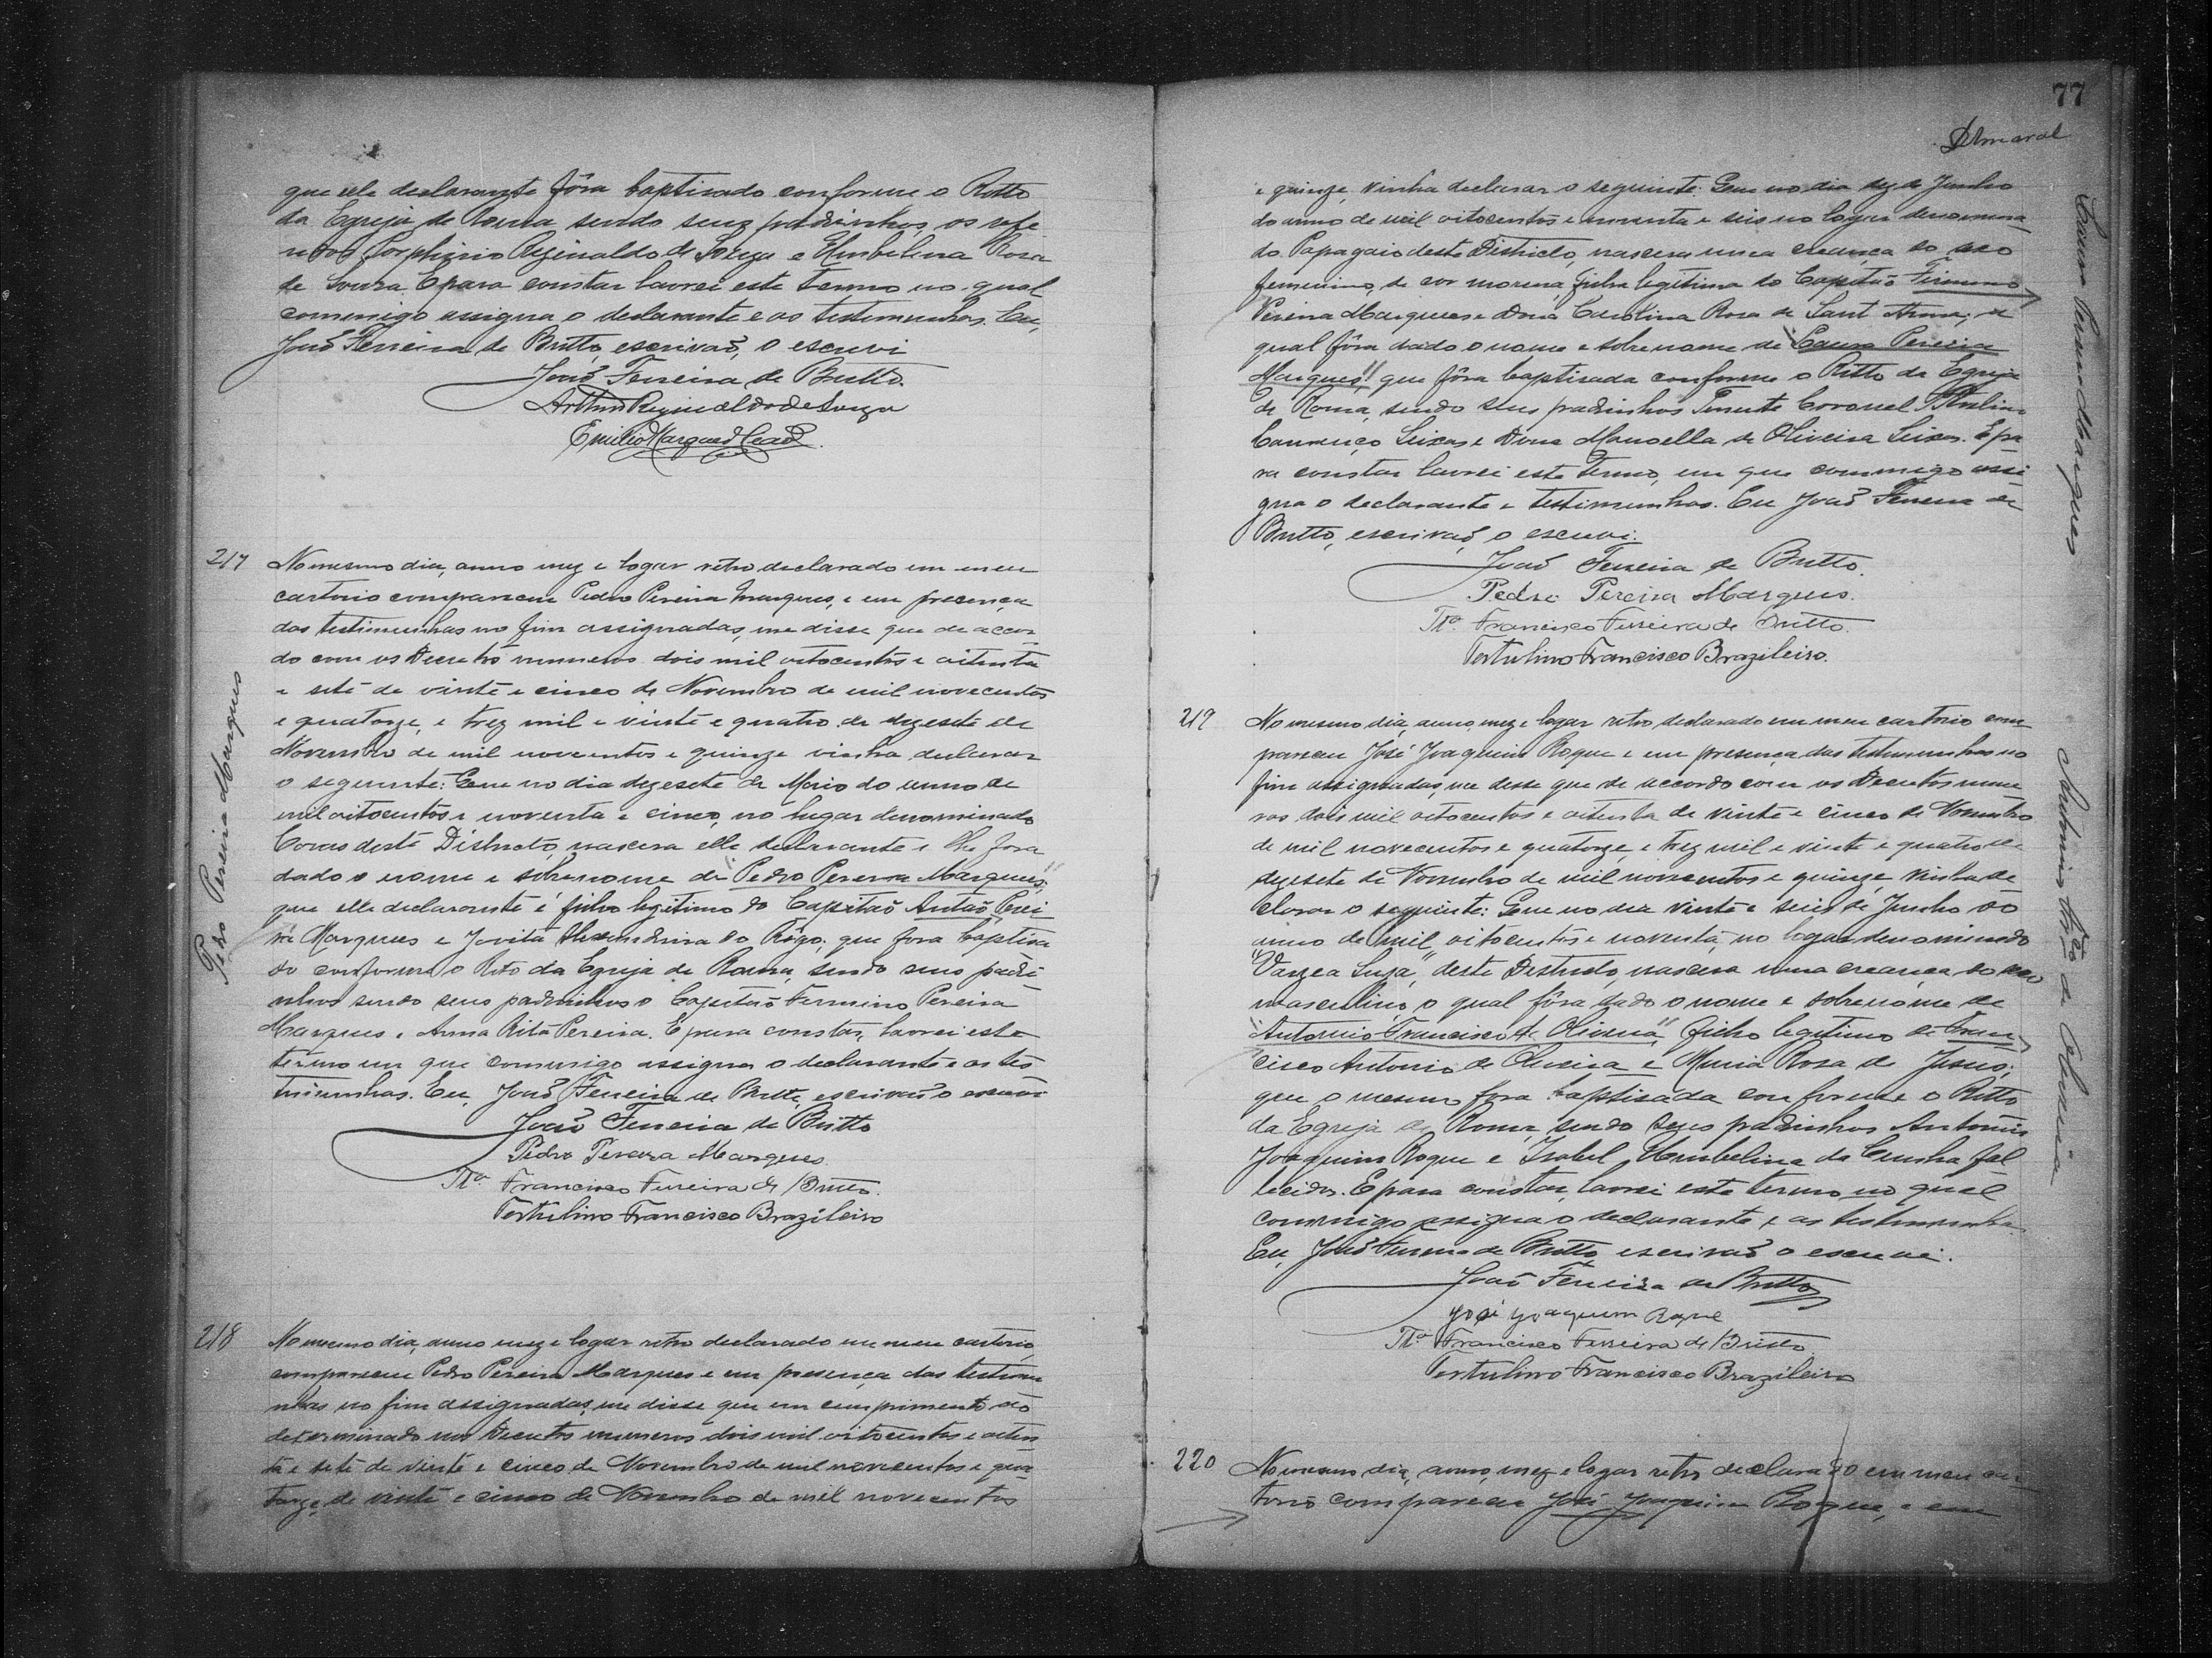 que elle declarante fôra baptisado conforme o Ritto
da Egreja de Roma sendo seus padrinhos, os refe
ridos Porphirio Reginaldo de Souza e Umbelina Rosa
de Souza. E para constar lavrei este termo no qual
commigo assigna o declarante e as testemunhas. Eu,
João Ferreira de Britto, escrivaõ, o escrevi
João Ferreira de Britto.
Arthur Reginaldo de Souza
Emilio Marques Leaõ.
217
No mesmo dia, anno mez e logar retro declarado em meu
cartorio compareceu Pedro Pereira Marques, e em presença
das testimunhas no fim assignadas, me disse que de accor
do com os Decretos numeros dois mil oitocentos e oitenta
e sete de vinte e cinco de Novembro de mil novecentos
e quatorze, e trez mil e vinte e quatro de dezesete de
Novembro de mil novecentos e quinze vinha declarar
o seguinte: Que no dia dezesete de Maio do anno de
mil oitocentos e noventa e cinco, no lugar denominado
Covas deste Districto, nascera elle declarante e lhe fora
dado o nome e sobrenome de "Pedro Pereira Marques",
que elle declarante é filho legitimo do Capitaõ Antaõ Perei
ra Marques e Jovita Alexandrina do Rêgo; que fora baptisa
do conforme o Rito da Egreja de Roma, sendo seus padri
nhos sendo seus padrinhos o Capitaõ Firmino Pereira
Marques e Anna Rita Pereira. E para constar, lavrei este
termo em que commigo assigna o declarante e as tes
timunhas. Eu, João Ferreira de Britto, escrivaõ o escrevi
João Ferreira de Britto
Pedro Pereira Marques.
Tta. Francisco Ferreira de Britto.
Tertulino Francisco Brazileiro
Pedro Pereira Marques
218
No mesmo dia, anno mez e logar retro declarado em meu cartorio,
compareceu Pedro Pereira Marques e em presença das testimu
nhas no fim assignadas, me disse que em cumprimento ao
determinado nos Decretos numeros dois mil oitocentos e oiten
ta e sete de vinte e cinco de Novembro de mil novecentos e qua
torze, de vinte e cinco de Novembro de mil novecentos
77
Amaral
e quinze, vinha declarar o seguinte: Que no dia dez de Junho
do anno de mil oitocentos e noventa e seis no logar denomina
do Papagaio deste Districto, nascera uma creança do sexo
feminino, de cor morena, filha legitima do Capitaõ Firmino
Pereira Marques e Dona Carolina Rosa de Sant'Anna; a
qual fôra dado o nome e sobrenome de "Laura Pereira
Marques", que fôra baptisada conforme o Ritto da Egreja
de Roma, sendo seus padrinhos Tenente Coronel
Seixas e Dona Manoella de Oliveira Seixas. E pa
ra constar lavrei este termo, em que commigo assi
gna o declarante e testimunhas. Eu João Ferreira de
Britto, escrivaõ, o escrevi.
João Ferreira de Britto.
Pedro Pereira Marques.
Tta. Francisco Ferreira de Britto.
Tertulino Francisco Brazileiro.
Laura Pereira Marques
219
No mesmo dia, anno, mez e logar retro declarado em meu cartorio com
pareceu José Joaquim Roque e em presença das testimunhas no
fim assignadas, me disse que de accordo com os Decretos nume
ros dois mil oitocentos e oitenta de vinte e cinco de Novembro
de mil novecentos e quatorze, e trez mil e vinte e quatro de
dezesete de Novembro de mil novecentos e quinze, vinha de
clarar o seguinte: Que no dia vinte e seis de Junho do
anno de mil oitocentos e noventa, no logar denominado
"Varzea Suja", deste Destricto, nascera uma creança do sexo
masculino, o qual fôra dado o nome e sobrenome de
"Antonio Francisco de Oliveira", filho legitimo de Fran
cisco Antonio de Oliveira e Maria Rosa de Jesus;
que o mesmo fora baptisada conforme o Ritto
da Egreja de Roma, sendo seus padrinhos Antonio
Joaquim Roque e Izabel Umbelina da Cunha fal
lecidos. E para constar, lavrei este termo no qual
commigo assigna o declarante e as testimunhas.
Eu, João Ferreira de Britto, escrivaõ o escrevi.
João Ferreira de Britto
José Joaquim Roque
Tta. Francisco Ferreira de Britto
Tertulino Francisco Brazileiro
Antonio de Oliveira
220
No mesmo dia, anno, mez e logar retro declarado em meu car
torio compareceu José Joaquim Roque, e em